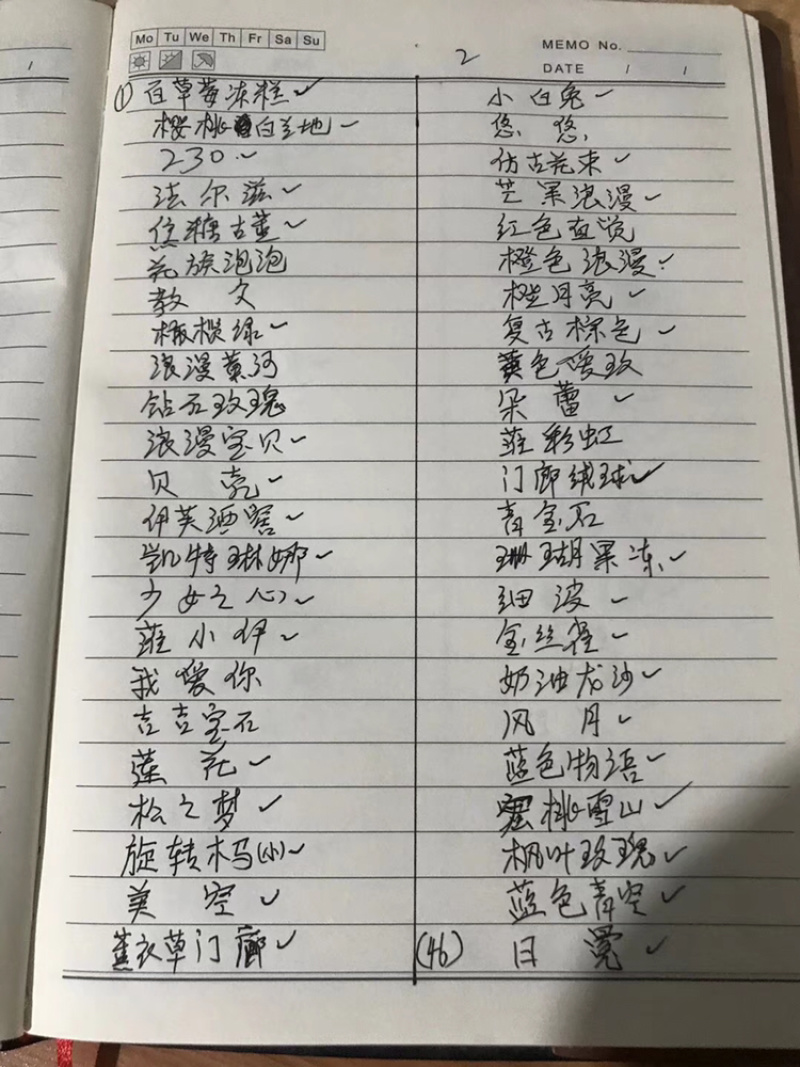 Mo Tu We Th Fr Sa Su
2
MEMO No.
DATE / /
① 百草莓冻糕 ✓
樱桃白兰地 ✓
230 ✓
法尔滋 ✓
焦糖古董 ✓
花族泡泡
教 父
橄榄绿 ✓
浪漫黄河
钻石玫瑰
浪漫宝贝 ✓
贝 壳 ✓
伊芙酒窖 ✓
凯特琳娜 ✓
少女之心 ✓
薤小伊 ✓
我爱你
吉吉宝石
莲 花 ✓
松之梦 ✓
旋转木马(小) ✓
美 空 ✓
薰衣草门廊 ✓
小白兔 ✓
悠 悠
仿古花束 ✓
芒果浪漫 ✓
红色直觉
橙色浪漫 ✓
橙月亮 ✓
复古棕色 ✓
黄色爱玫
朵 蕾 ✓
薤彩虹
门廊绒球 ✓
青金石
珊瑚果冻 ✓
细 波 ✓
金丝雀 ✓
奶油龙沙 ✓
风 月 ✓
蓝色物语 ✓
蜜桃雪山 ✓
枫叶玫瑰 ✓
蓝色青空 ✓
(46) 日 冕 ✓